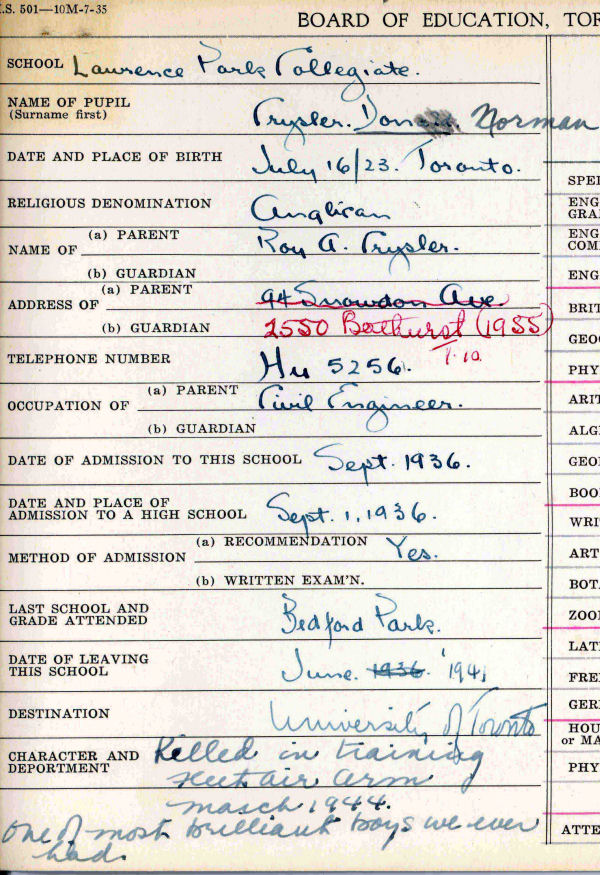 I.S. 501—10M-7-35
BOARD OF EDUCATION, TOR
SCHOOL Lawrence Park Collegiate.
NAME OF PUPIL
(Surname first) Trysler. Norman
DATE AND PLACE OF BIRTH July 16/23. Toronto.
RELIGIOUS DENOMINATION Anglican
NAME OF (a) PARENT Roy A. Trysler.
(b) GUARDIAN
ADDRESS OF (a) PARENT 94 Snowdon Ave.
(b) GUARDIAN 2550 Bathurst (1955)
TELEPHONE NUMBER Hu 5256.
OCCUPATION OF (a) PARENT Civil Engineer.
(b) GUARDIAN
DATE OF ADMISSION TO THIS SCHOOL Sept. 1936.
DATE AND PLACE OF
ADMISSION TO A HIGH SCHOOL Sept. 1, 1936.
METHOD OF ADMISSION (a) RECOMMENDATION Yes.
(b) WRITTEN EXAM'N.
LAST SCHOOL AND
GRADE ATTENDED Bedford Park.
DATE OF LEAVING
THIS SCHOOL June. 1936. '1941
DESTINATION University of Toronto
CHARACTER AND
DEPORTMENT Killed in training
Fleet air arm
March 1944.
One of most brilliant boys we ever
had.
SPEL
ENG
GRA
ENG
COM
ENG
BRIT
GEOG
PHY
ARIT
ALG
GEO
BOO
WRI
ART
BOT
ZOO
LAT
FRE
GER
HOU
or MA
PHY
ATTE